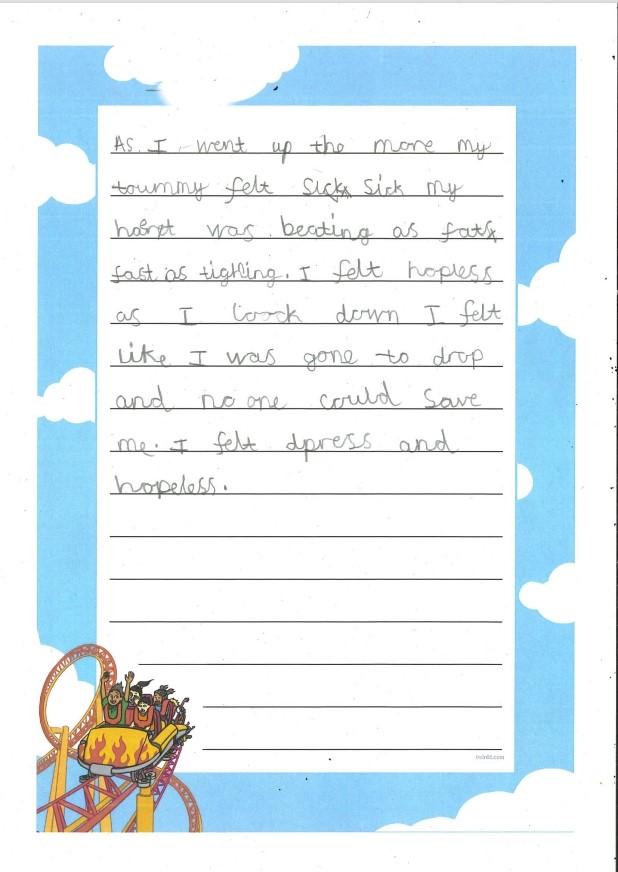 As I went up the more my
toummy felt sick sick my
haert was beating as fats
fast as tightling. I felt hopless
as I loock down I felt
like I was gone to drop
and no one could save
me. I felt dpress and
hopeless.
twinkl.com